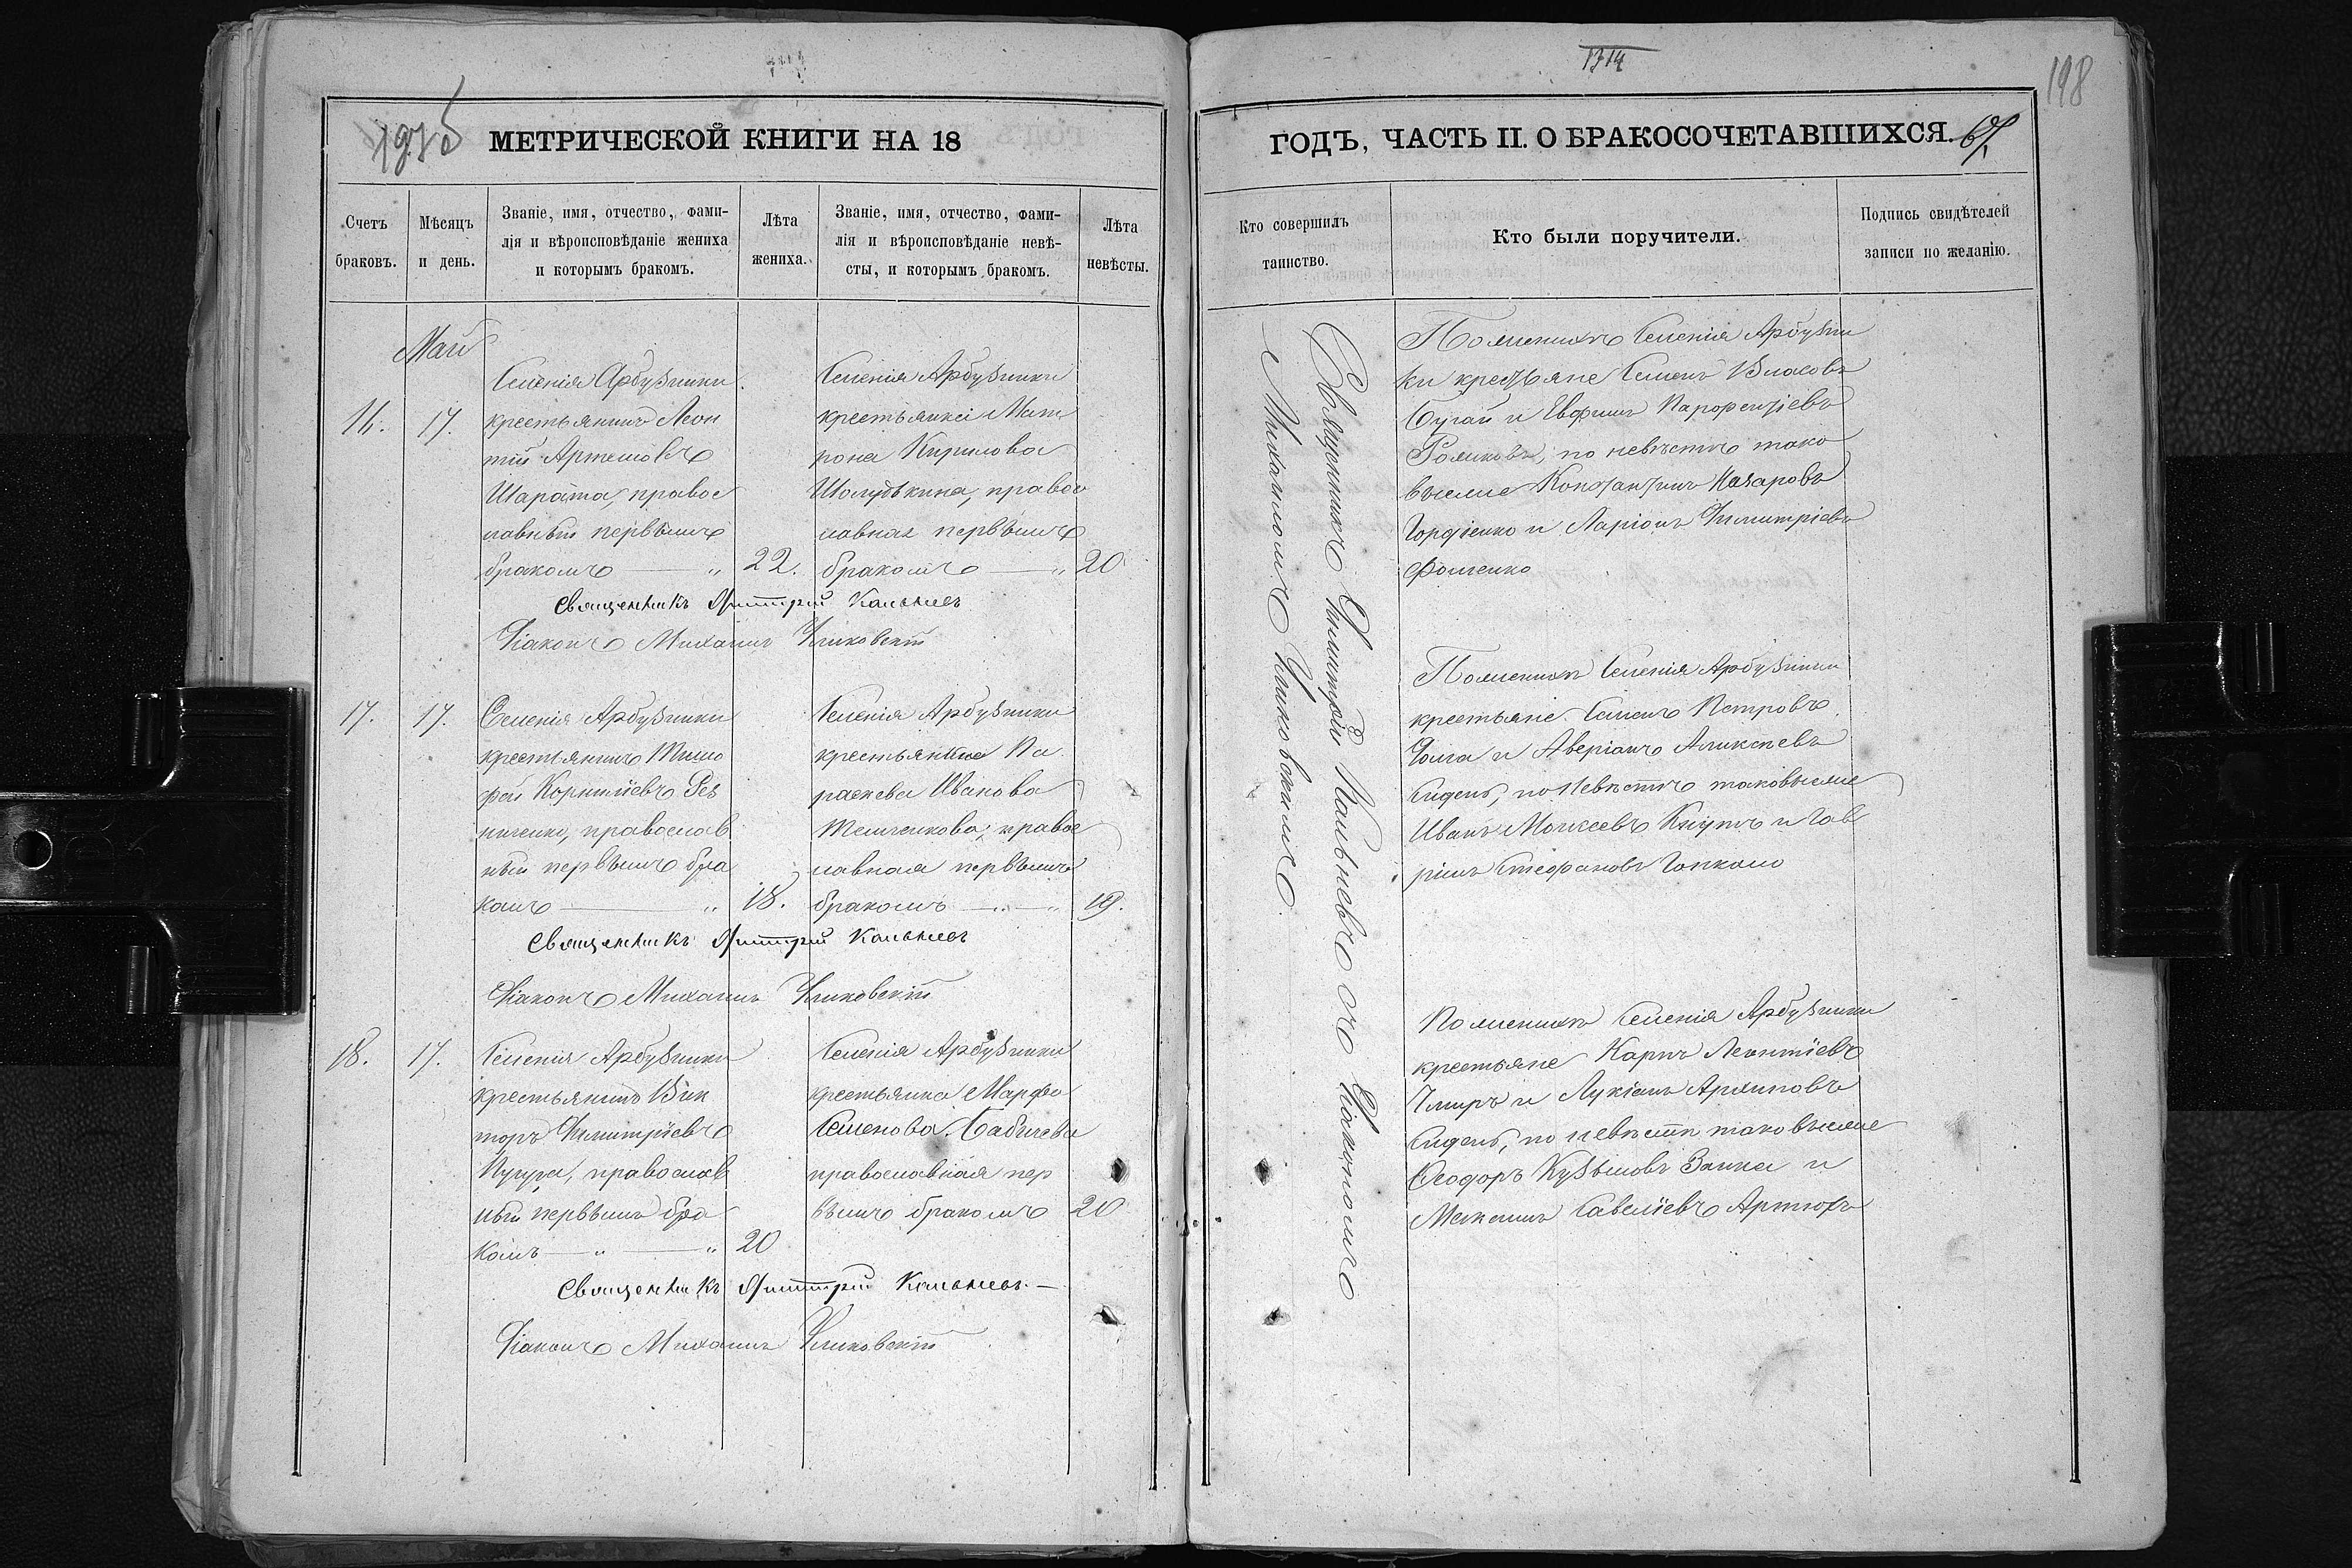 1314
198
МЕТРИЧЕСКОЙ КНИГИ НА 18
ГОДЪ, ЧАСТЬ II. О БРАКОСОЧЕТАВШИХСЯ.
Счетъ браковъ.
Мѣсяцъ и день.
Званіе, имя, отчество, фами-
лія и вѣроисповѣданіе жениха
и которымъ бракомъ.
Лѣта жениха.
Званіе, имя, отчество, фами-
лія и вѣроисповѣданіе невѣ-
сты, и которымъ бракомъ.
Лѣта невѣсты.
Май
16.
17.
Селенія Арбузинки
крестьянинъ Леон
тій Артемовъ
Шарата, правос
лавный первымъ
бракомъ 22.
Селенія Арбузинки
крестьянка Мат
рона Кирилова
правос
лавная первымъ
бракомъ 20
Священникъ Димитрій Кальневъ
Діаконъ Михаилъ
17.
17.
Селенія Арбузинки
крестьянинъ Тимо
фей Корнилiевъ Рез
ниченко, православ
ный первымъ бра
комъ 18.
Селенія Арбузинки
крестьянка Па
раскева Иванова
правос
лавная первымъ
бракомъ 19.
Священникъ Димитрій Кальневъ
Діаконъ Михаилъ
18.
17.
Селенія Арбузинки
крестьянинъ Вик
торъ Димитріевъ
православ
ный первымъ бра
комъ 20
Селенія Арбузинки
крестьянка Марфа
Семенова Бабичева
православная пер
вымъ бракомъ 20
Священникъ Димитрій Кальневъ.
Діаконъ Михаилъ
Кто совершилъ
таинство.
Кто были поручители.
Подпись свидѣтелей
записи по желанію.
Священникъ Димитрій Кальневъ съ Діакономъ
Михаиломъ
По женихѣ Селенія Арбузин
ки крестьяне Семенъ Власовъ
Бугай и Евфимъ Парфеніевъ
по невѣстѣ тако
выеже Константинъ Назаровъ
Гордіенко и Ларіонъ Димитріевъ
Фоменко
По женихѣ Селенія Арбузинки
крестьяне Семенъ Петровъ
и Аверіанъ Алексѣевъ
по невѣстѣ таковыеже
Иванъ Моисеевъ и Гав
ріилъ Стефановъ
По женихѣ Селенія Арбузинки
крестьяне Карпъ Леонтіевъ
и Лукіанъ Архиповъ
по невѣстѣ таковыеже
Феодоръ Кузьмовъ Заика и
Максимъ Савеліевъ